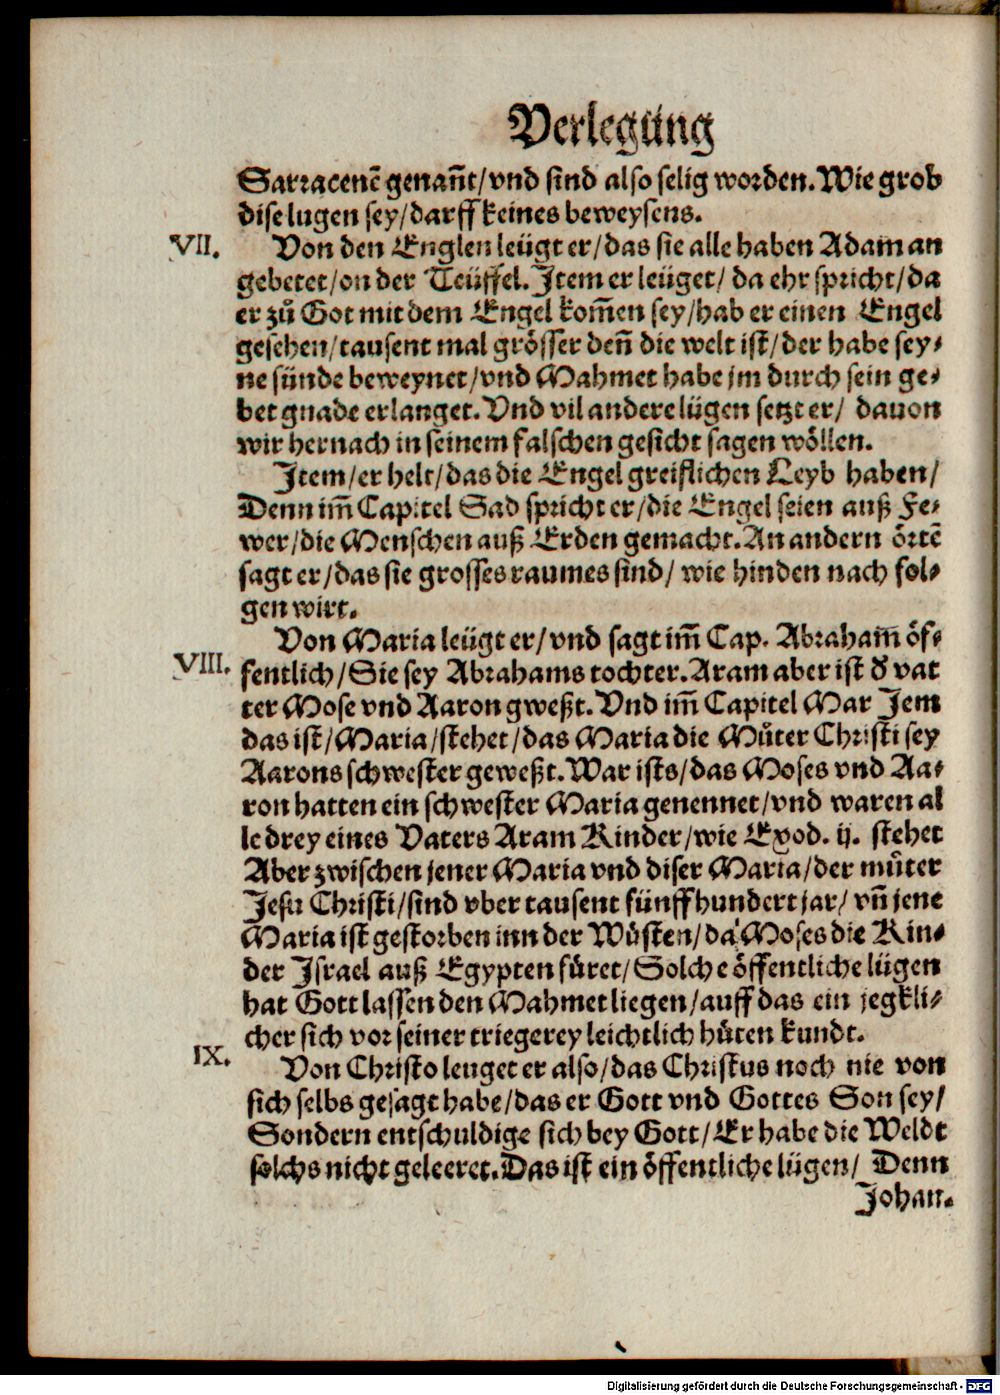 Verlegūng
Sarracenē genañt/vnd sind also selig worden. Wie grob
dise lugen sey/darff keines beweysens.
VII. Von den Englen leügt er/das sie alle haben Adam an
gebetet/on der Teüffel. Item er leüget/ da ehr spricht/da
er zů Got mit dem Engel kom̃en sey/hab er einen Engel
gesehen/tausent mal grösser deñ die welt ist/der habe sey-
ne sünde beweynet/vnd Mahmet habe jm durch sein ge-
bet gnade erlanget. Vnd vil andere lügen setzt er/ dauon
wir hernach in seinem falschen gesicht sagen wöllen.
Item/er helt/das die Engel greiflichen Leyb haben/
Denn im̃ Capitel Sad spricht er/die Engel seien auß Fe-
wer/die Menschen auß Erden gemacht. An andern örtē
sagt er/das sie grosses raumes sind/ wie hinden nach fol-
gen wirt.
Von Maria leügt er/vnd sagt im̃ Cap. Abraham̃ öf-
VIII. fentlich/Sie sey Abrahams tochter. Aram aber ist d̕ vat
ter Mose vnd Aaron gweßt. Vnd im̃ Capitel Mar Jem
das ist/Maria/stehet/das Maria die Můter Christi sey
Aarons schwester geweßt. War ists/das Moses vnd Aa-
ron hatten ein schwester Maria genennet/vnd waren al
le drey eines Vaters Aram Kinder/wie Exod. ij. stehet
Aber zwischen jener Maria vnd diser Maria/der můter
Jesu Christi/sind vber tausent fünffhundert jar/ vñ jene
Maria ist gestorben inn der Wüsten/da Moses die Kin-
der Israel auß Egypten füret/Solche öffentliche lügen
hat Gott lassen den Mahmet liegen/auff das ein jegkli-
cher sich vor seiner triegerey leichtlich hüten kundt.
IX. Von Christo leuget er also/das Christus noch nie von
sich selbs gesagt habe/das er Gott vnd Gottes Son sey/
Sondern entschuldige sich bey Gott/Er habe die Weldt
solchs nicht geleeret. Das ist ein öffentliche lügen/ Denn
Johan.
Digitalisierung gefördert durch die Deutsche Forschungsgemeinschaft - DFG